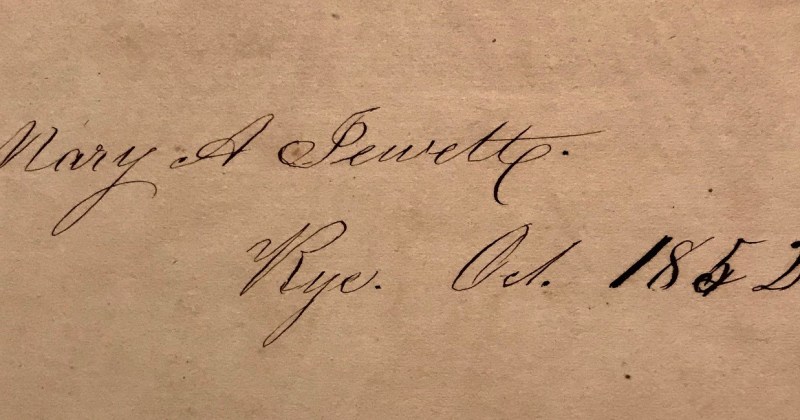 Mary A Jewett.
Rye. Oct. 1852